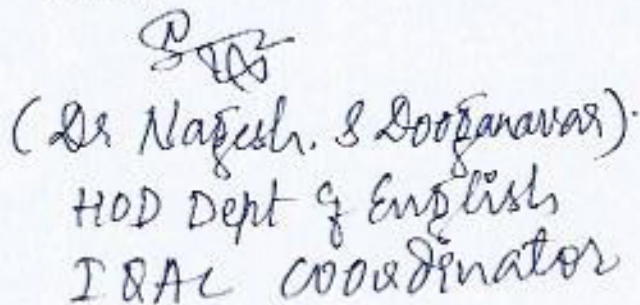 (Dr Nagesh. S Dooganavar).
HOD Dept of English
IQAC coordinator